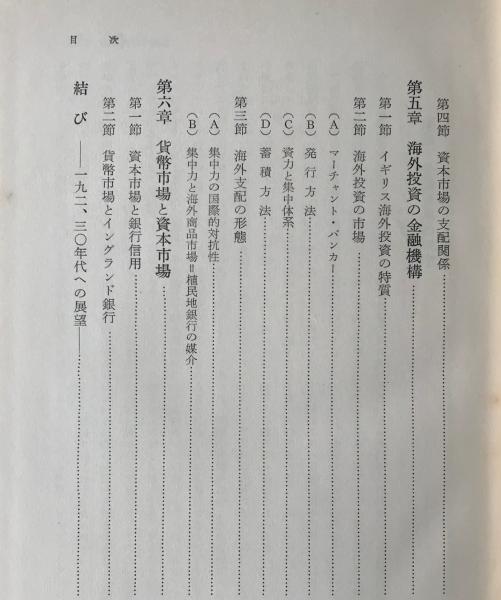 目次
第四節 資本市場の支配関係
第五章 海外投資の金融機構
第一節 イギリス海外投資の特質
第二節 海外投資の市場
(A) マーチャント・バンカー
(B) 発行方法
(C) 資力と集中体系
(D) 蓄積方法
第三節 海外支配の形態
(A) 集中力の国際的対抗性
(B) 集中力と海外商品市場=植民地銀行の媒介
第六章 貨幣市場と資本市場
第一節 資本市場と銀行信用
第二節 貨幣市場とイングランド銀行
結び ――一九二、三〇年代への展望――